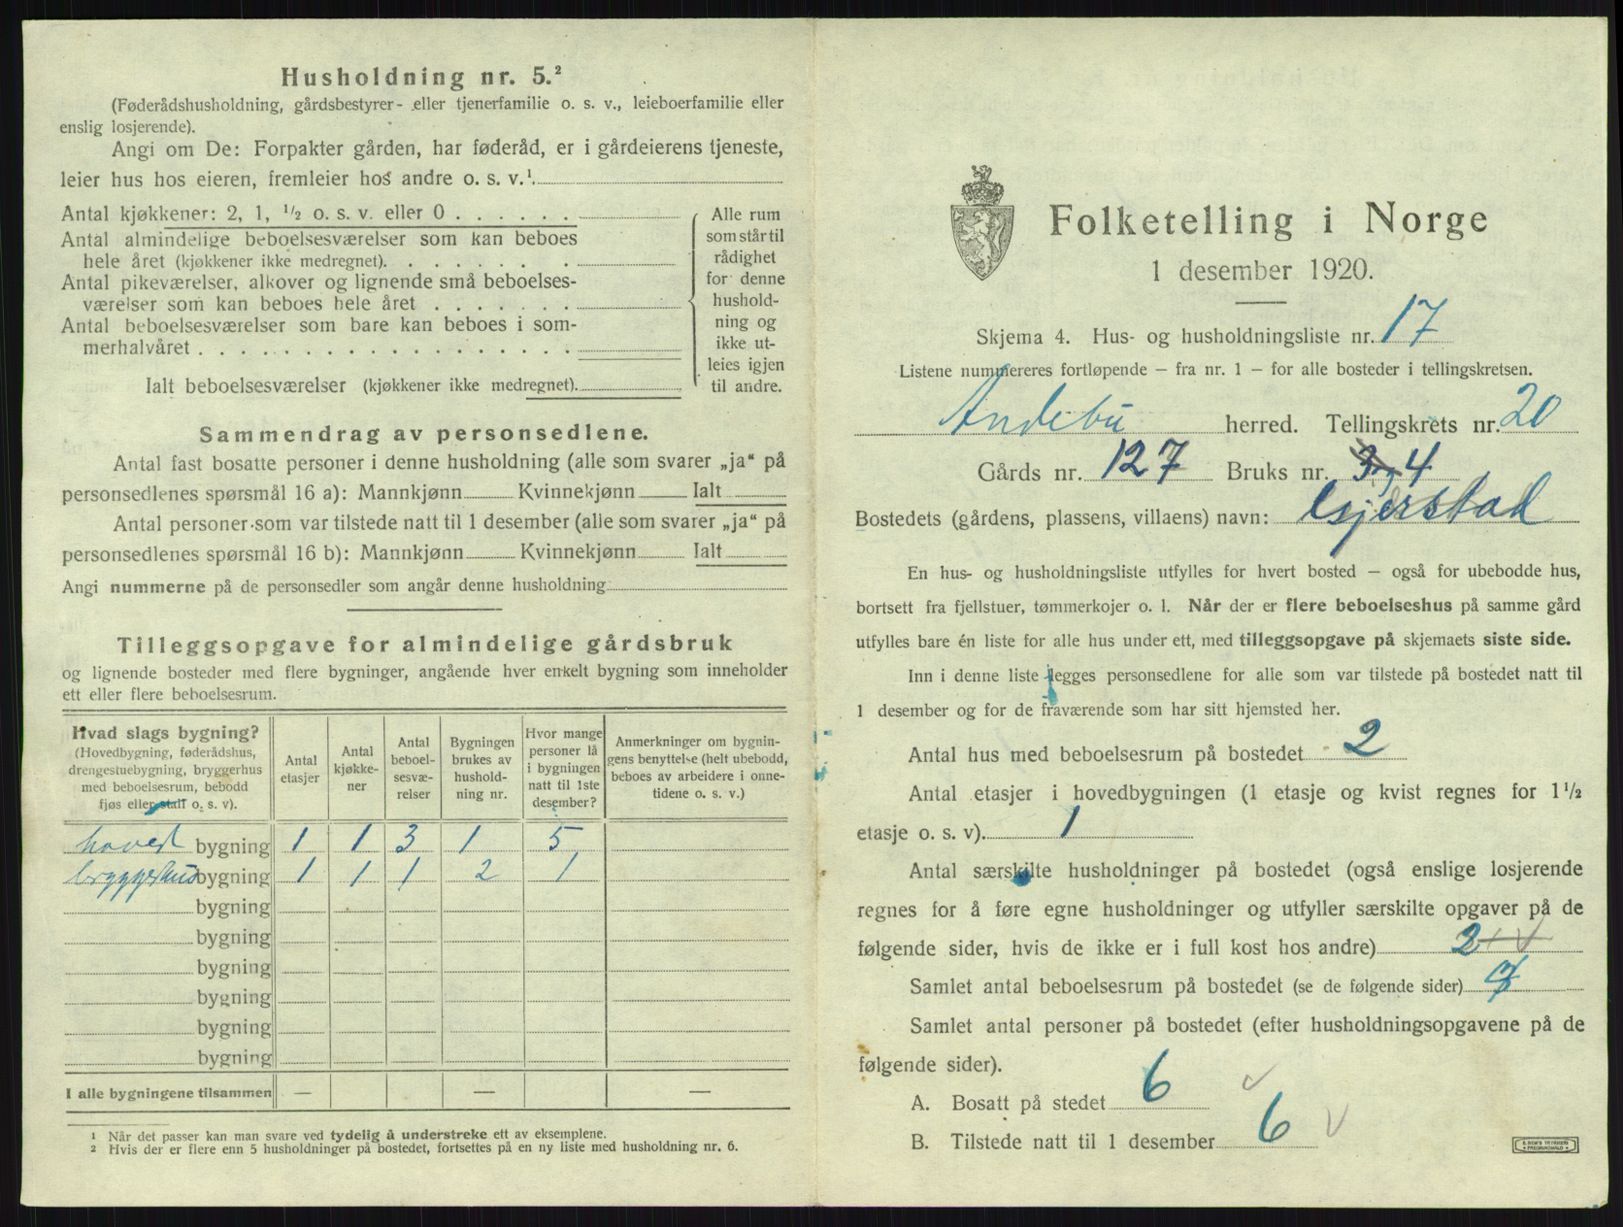 Husholdning nr. 5.²
(Føderådshusholdning, gårdsbestyrer- eller tjenerfamilie o. s. v., leieboerfamilie eller
enslig losjerende).
Angi om De: Forpakter gården, har føderåd, er i gårdeierens tjeneste,
leier hus hos eieren, fremleier hos andre o. s. v.¹
Antal kjøkkener: 2, 1, ½ o. s. v. eller 0 . . . . . .
Antal almindelige beboelsesværelser som kan beboes
hele året (kjøkkener ikke medregnet). . . . . . . .
Antal pikeværelser, alkover og lignende små beboelses-
værelser som kan beboes hele året . . . . . . .
Antal beboelsesværelser som bare kan beboes i som-
merhalvåret . . . . . . . . . . . . . . . . . .
Ialt beboelsesværelser (kjøkkener ikke medregnet).
Alle rum
som står til
rådighet
for denne
hushold-
ning og
ikke ut-
leies igjen
til andre.
Sammendrag av personsedlene.
Antal fast bosatte personer i denne husholdning (alle som svarer „ja" på
personsedlenes spørsmål 16 a): Mannkjønn Kvinnekjønn Ialt
Antal personer som var tilstede natt til 1 desember (alle som svarer „ja" på
personsedlenes spørsmål 16 b): Mannkjønn Kvinnekjønn Ialt
Angi nummerne på de personsedler som angår denne husholdning
Tilleggsopgave for almindelige gårdsbruk
og lignende bosteder med flere bygninger, angående hver enkelt bygning som inneholder
ett eller flere beboelsesrum.
Hvad slags bygning?
(Hovedbygning, føderådshus,
drengestuebygning, bryggerhus
med beboelsesrum, bebodd
fjøs eller stall o. s. v).
Antal
etasjer
Antal
kjøkke-
ner
Antal
beboel-
sesvæ-
relser
Bygningen
brukes av
hushold-
ning nr.
Hvor mange
personer lå
i bygningen
natt til 1ste
desember?
Anmerkninger om bygnin-
gens benyttelse (helt ubebodd,
beboes av arbeidere i onne-
tidene o. s. v.)
hoved bygning 1 1 3 1 5
bryggerhus bygning 1 1 1 2 1
bygning
bygning
bygning
bygning
bygning
bygning
I alle bygningene tilsammen — — —
¹ Når det passer kan man svare ved tydelig å understreke ett av eksemplene.
² Hvis der er flere enn 5 husholdninger på bostedet, fortsettes på en ny liste med husholdning nr. 6.
Folketelling i Norge
1 desember 1920.
Skjema 4. Hus- og husholdningsliste nr. 17
Listene nummereres fortløpende — fra nr. 1 — for alle bosteder i tellingskretsen.
Andebu herred. Tellingskrets nr. 20
Gårds nr. 127 Bruks nr. 3, 4
Bostedets (gårdens, plassens, villaens) navn: Gjerstad
En hus- og husholdningsliste utfylles for hvert bosted — også for ubebodde hus,
bortsett fra fjellstuer, tømmerkojer o. l. Når der er flere beboelseshus på samme gård
utfylles bare én liste for alle hus under ett, med tilleggsopgave på skjemaets siste side.
Inn i denne liste legges personsedlene for alle som var tilstede på bostedet natt til
1 desember og for de fraværende som har sitt hjemsted her.
Antal hus med beboelsesrum på bostedet 2
Antal etasjer i hovedbygningen (1 etasje og kvist regnes for 1½
etasje o. s. v). 1
Antal særskilte husholdninger på bostedet (også enslige losjerende
regnes for å føre egne husholdninger og utfyller særskilte opgaver på de
følgende sider, hvis de ikke er i full kost hos andre) 2
Samlet antal beboelsesrum på bostedet (se de følgende sider)
Samlet antal personer på bostedet (efter husholdningsopgavene på de
følgende sider).
A. Bosatt på stedet 6
B. Tilstede natt til 1 desember 6